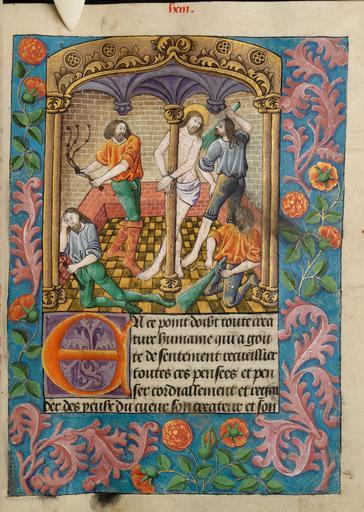 lxiii.
En ce point doibt toute crea
ture humaine qui a gou
te de sentement recueillier
toutes ces pensees et pen
ser cordiallement et regar
der des yeulx du cueur son createur et son